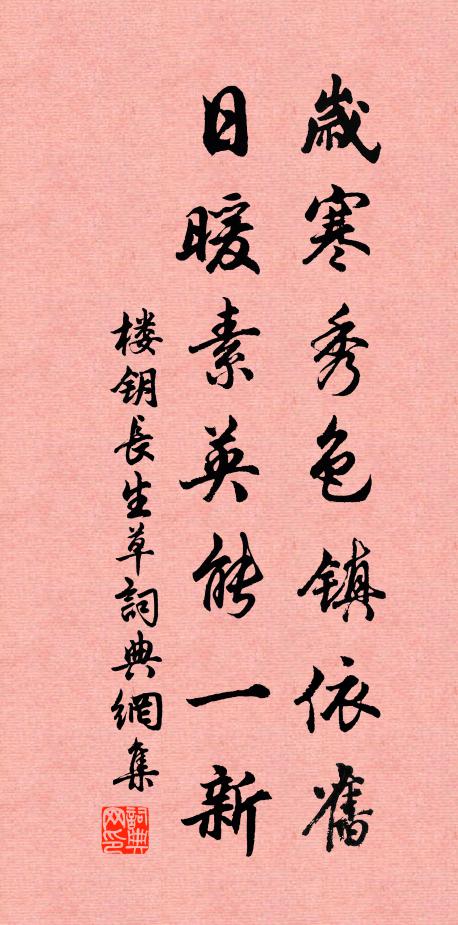 歲寒秀色鎮依舊
日暖素英能一新
楼钥長生草詞典網集
詞典网印